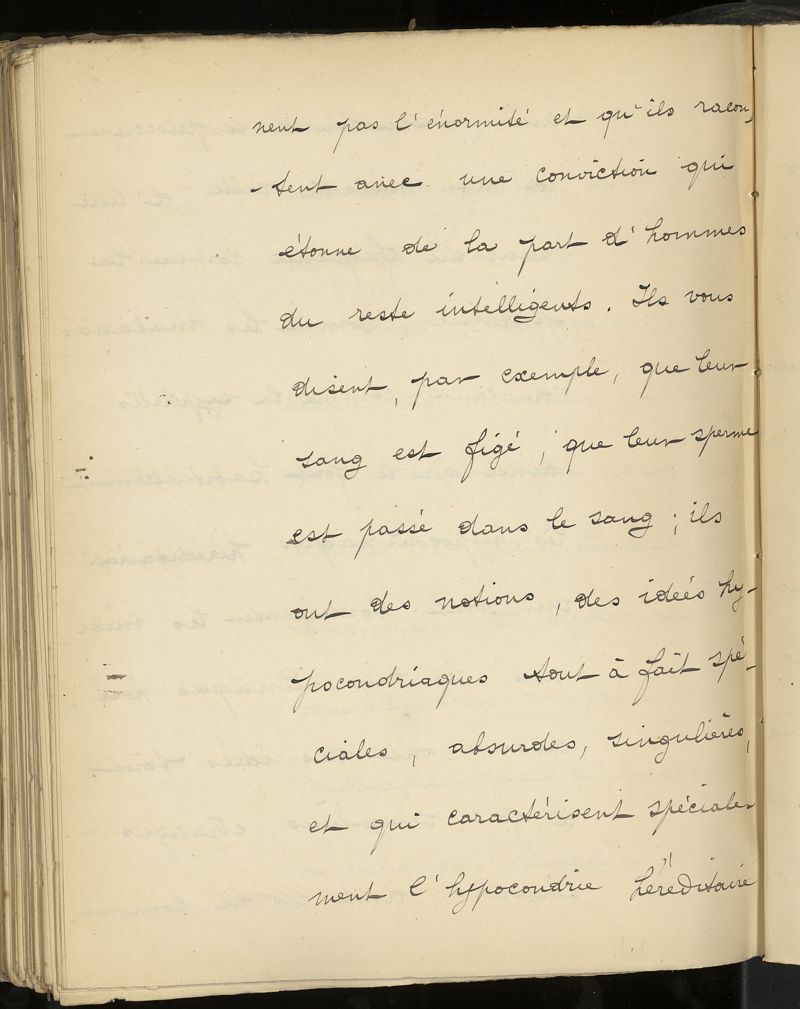 nent pas l'énormité et qu'ils racon-
-tent avec une conviction qui
étonne de la part d'hommes
du reste intelligents. Ils vous
disent, par exemple, que leur
sang est figé, que leur sperme
est passé dans le sang; ils
ont des notions, des idées hy-
pocondriaques tout à fait spé-
ciales, absurdes, singulières,
et qui caractérisent spéciale-
ment l'hypocondrie héréditaire